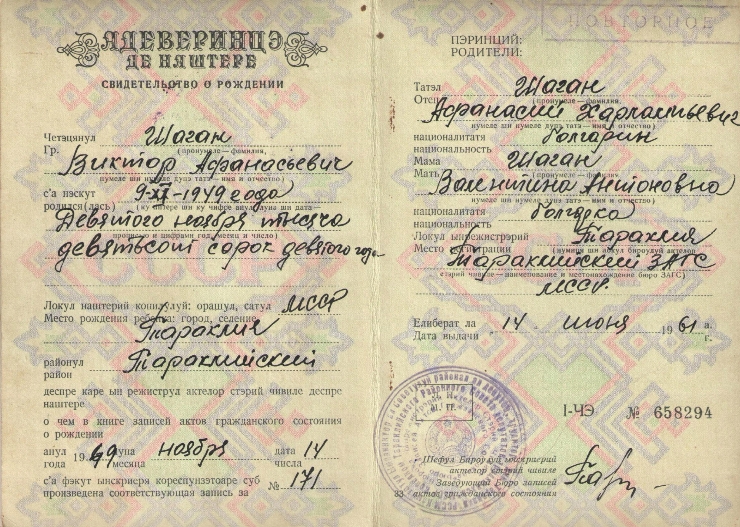 АДЕВЕРИНЦЭ
ДЕ НАШТЕРЕ
СВИДЕТЕЛЬСТВО О РОЖДЕНИИ
Четэцянул
Гр. Шаган
(пронумеле — фамилия,
Виктор Афанасьевич
нумеле ши нумеле дупэ татэ — имя и отчество)
с'а нэскут
родился(лась) 9-XI-1949 года
(ку литере ши ку чифре анул, луна ши дата —
Девятого ноября тысяча
прописью и цифрами год, месяц и число)
девятьсот сорок девятого года
Локул наштерий копилулуй: орашул, сатул МССР
Место рождения ребенка: город, селение
Тараклия
районул
район Тараклийский
деспре каре ын режиструл актелор стэрий чивиле деспре
наштере
о чем в книге записей актов гражданского состояния
о рождении
анул 1949 луна ноября дата 14
года месяца числа
с'а фэкут ынскриеря кореспунзэтоаре суб
произведена соответствующая запись за № 171
ПОВТОРНОЕ
ПЭРИНЦИЙ:
РОДИТЕЛИ:
Татэл
Отец Шаган
(пронумеле — фамилия,
Афанасий Харлампьевич
нумеле ши нумеле дупэ татэ — имя и отчество)
националитатя
национальность болгарин
Мама
Мать Шаган
Валентина Антоновна
нумеле ши нумеле дупэ татэ — имя и отчество)
националитатя
национальность болгарка
Локул ынрежистрэрий
Место регистрации Тараклия
(нумиря ши локул бироулуй актелор
Тараклийский ЗАГС
стэрий чивиле — наименование и местонахождение бюро ЗАГС)
МССР
Елиберат ла
Дата выдачи 14 июня 1961 а.
г.
I-ЧЭ № 658294
Шефул Бироулуй ынскриерий
актелор стэрий чивиле
Заведующий Бюро записей
актов гражданского состояния
33